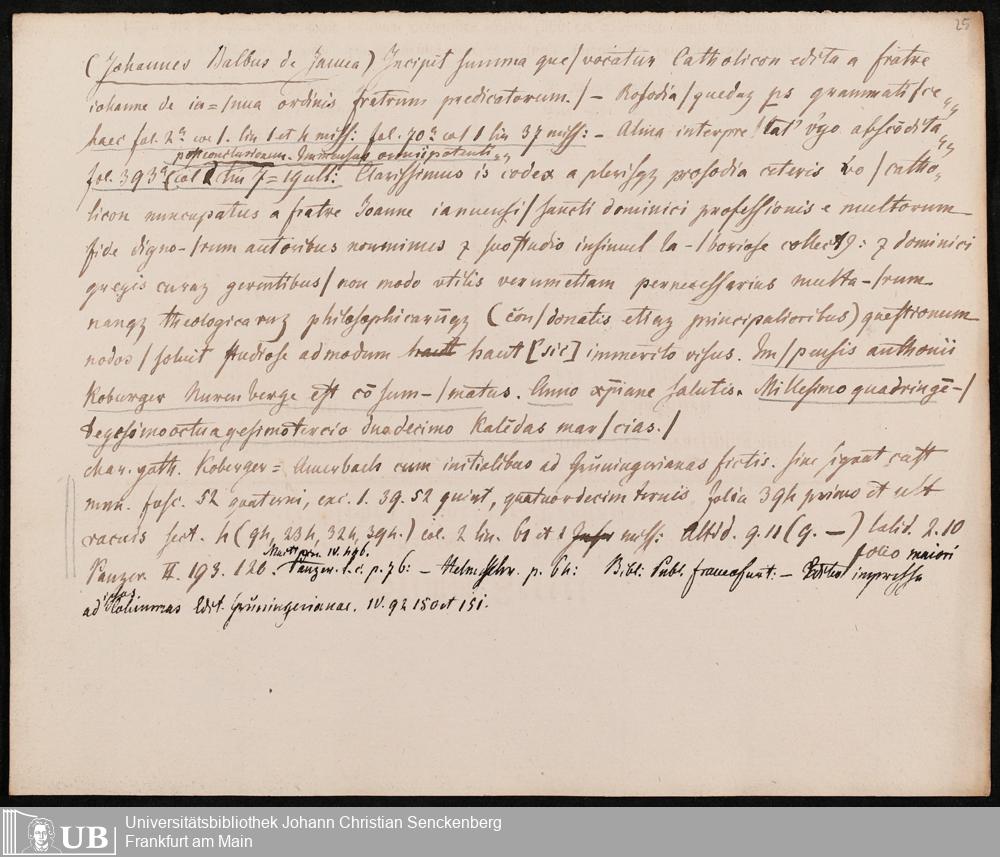 25
(Johannes Balbus de Janua) Incipit summa que/vocatur Catholicon edita a fratre
iohanne de ia=/nua ordinis fratrum predicatorum./ – Rosodia/quedaz ps grammati/ce
haec fol. 2a col 1. lin 1 et 4 miss: fol. 70a col 1 lin 37 miss: – Alma interpre/tat' v'go abscōdita
post conclusionem. Immensas omnipotenti
fol. 393a (col 2 lin 7 = 19 ult: Clarissimus is codex a plerisqz prosodia ceteris vo/catho
licon nuncupatus a fratre Joanne ianuensi/sancti dominici professionis e multorum
fide digno-/rum autoribus nonminus z suo studio insimul la-/boriose collect9: z dominici
gregis curaz gerentibus/non modo utilis verumetiam pernecessarius multa-/rum
nangz theologicaruz philosophicarūqz (cōn/donatis etiaz principalioribus) questionum
nodos/soluit studiose admodum haut [sic] immerito visus. Im/pensis anthonii
Koburger Nurenberge est cō sum-/matus. Anno xpiane salutis. Millesimo quadringē-/
tegesimooctuagesimotercio duodecimo Kalēdas mar/cias./
char. goth. Koberger = Amerbach cum initialibus ad Grüningerianas fictis. sine signat cust
num. fasc. 52 quaterni, exc. 1. 39. 52 quint, quatuordecim ternis folia 394 primo et ult
vacuis sect. 4 (94, 234, 324, 394.) col. 2 lin. 61 et 1 miss: altid. 9.11 (9. –) latid. 2.10
Panzer. II. 193. 120. Panzer. l.c. p. 76: – Helmschr. p. 64: Bibl: Publ. francofurt: – Editio impressa
folio maiori
ad Columnas Edit. Grüningerianae. IV. 92 150 et 151.
UB
Universitätsbibliothek Johann Christian Senckenberg
Frankfurt am Main